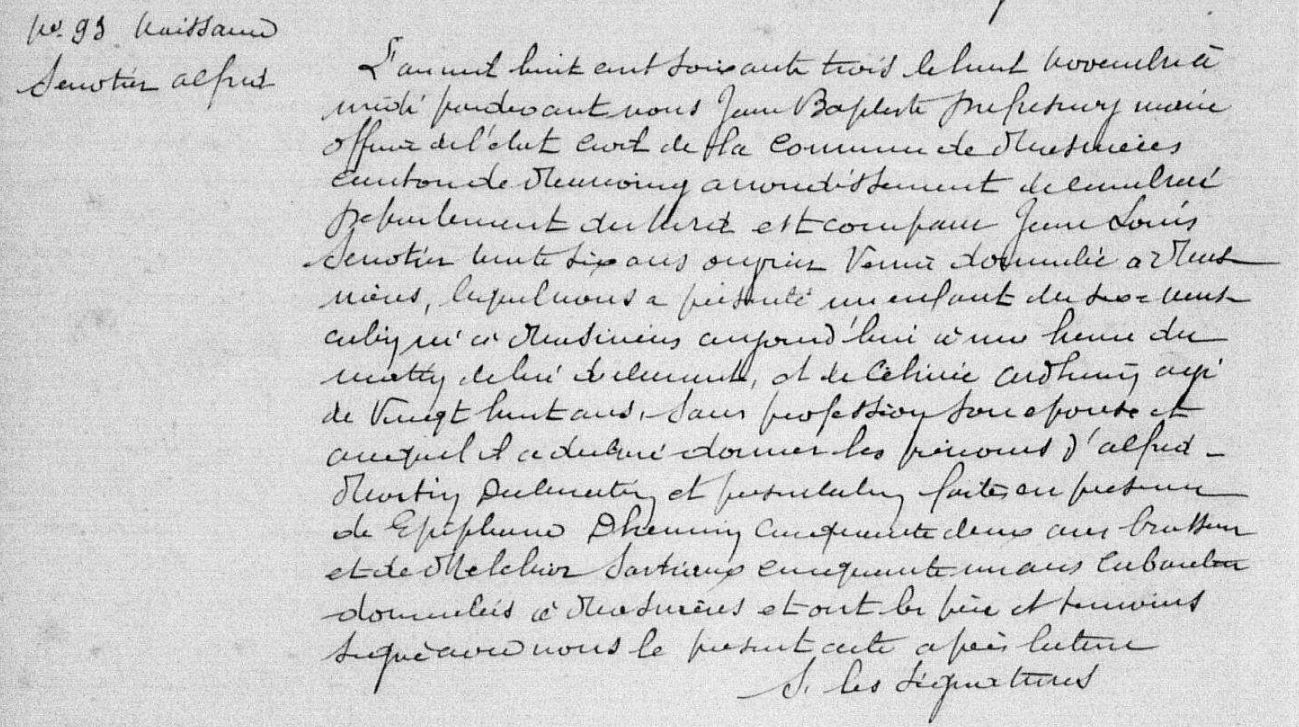 No. 93 Naissance
Senotier alfred
L'an mil huit cent soixante trois le huit Novembre à
midi pardevant nous Jean Baptiste Dufresnoy maire
officier de l'état civil de la Commune de Masnières
canton de Marcoing arrondissement de Cambrai
Département du Nord est comparu Jean Louis
Senotier trente six ans ouvrier Verrier domicilié à Mas
nières, lequel nous a présenté un enfant du sexe mas
culin né à Masnières aujourd'hui à une heure du
matin de lui déclarant, et de Célinie agé
de Vingt huit ans, Sans profession son epouse et
auquel il a déclaré donner les prénoms d'alfred
Martin Declaration et presentation faites en presence
de Epiphane Dhennin cinquante deux ans brasseur
et de Melchior cinquante un ans Cabaretier
domiciliés à Masnières et ont les père et temoins
signé avec nous le present acte après lecture
S. les signatures